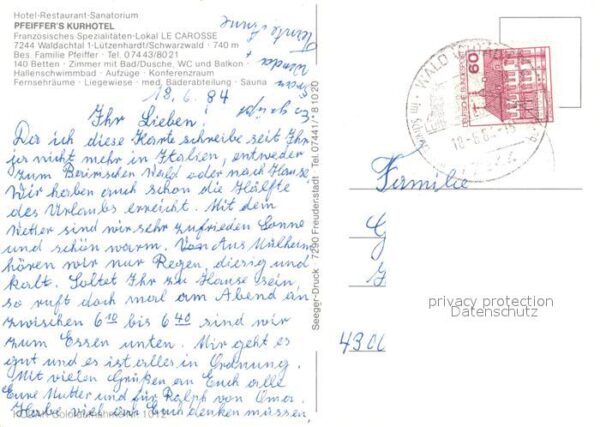 Hotel-Restaurant-Sanatorium
PFEIFFER'S KURHOTEL
Französisches Spezialitäten-Lokal LE CAROSSE
7244 Waldachtal 1-Lützenhardt/Schwarzwald · 740 m
Bes. Familie Pfeiffer · Tel. 07443/8021
140 Betten · Zimmer mit Bad/Dusche, WC und Balkon
Hallenschwimmbad · Aufzüge · Konferenzraum
Fernsehräume · Liegewiese · med. Bäderabteilung · Sauna
18.6.84
Ihr Lieben!
Da ich diese Karte schreibe seit Ihr
ja nicht mehr in Italien, entweder
zum Bairischen Wald oder nach Hause
Wir haben auch schon die Hälfte
des Urlaubs erreicht. Mit dem
Wetter sind wir sehr zufrieden Sonne
und schön warm. Von Aus Mülheim
hören wir nur Regen, diesig und
kalt. Soltet Ihr zu Hause sein,
so ruft doch mal am Abend an,
zwischen 6 10 bis 6 40 sind wir
zum Essen unten. Mir geht es
gut und es ist alles in Ordnung.
Mit vielen Grüßen an Euch alle
Eure Mutter und für Ralph von Oma.
Habe viel an Euch denken müssen.
Es grüßt
Seeger-Druck · 7290 Freudenstadt · Tel. 07441/*81020
60
DEUTSCHE BUNDESPOST
WALDACHTAL
18-6.84-15
Familie
G
Z
4300
privacy protection
Datenschutz